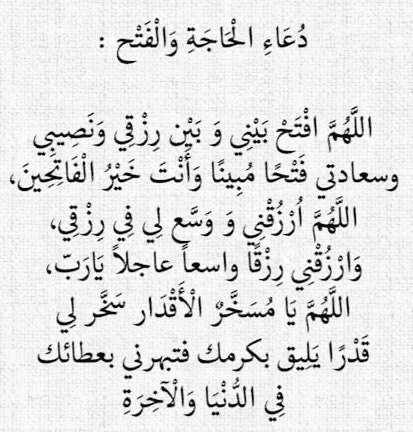 دُعَاءِ الْحَاجَةِ وَالْفَتْح :
اللَّهُمَّ افْتَحْ بَيْنِي وَ بَيْن رِزْقِي وَنَصِيبِي
وسعادتي فَتْحًا مُبِينًا وَأَنْتَ خَيْرُ الْفَاتِحِينَ،
اللَّهُمَّ اُرْزُقْنِي وَ وَسَّع لِي فِي رِزْقِي،
وَارْزُقْنِي رِزْقًا واسعاً عاجلاً يَارَبّ،
اللَّهُمَّ يَا مُسَخَّرُ الْأَقْدَار سَخَّر لِي
قَدْرًا يَلِيق بكرمك فتبهرني بعطائك
فِي الدُّنْيَا وَالْآخِرَةِ